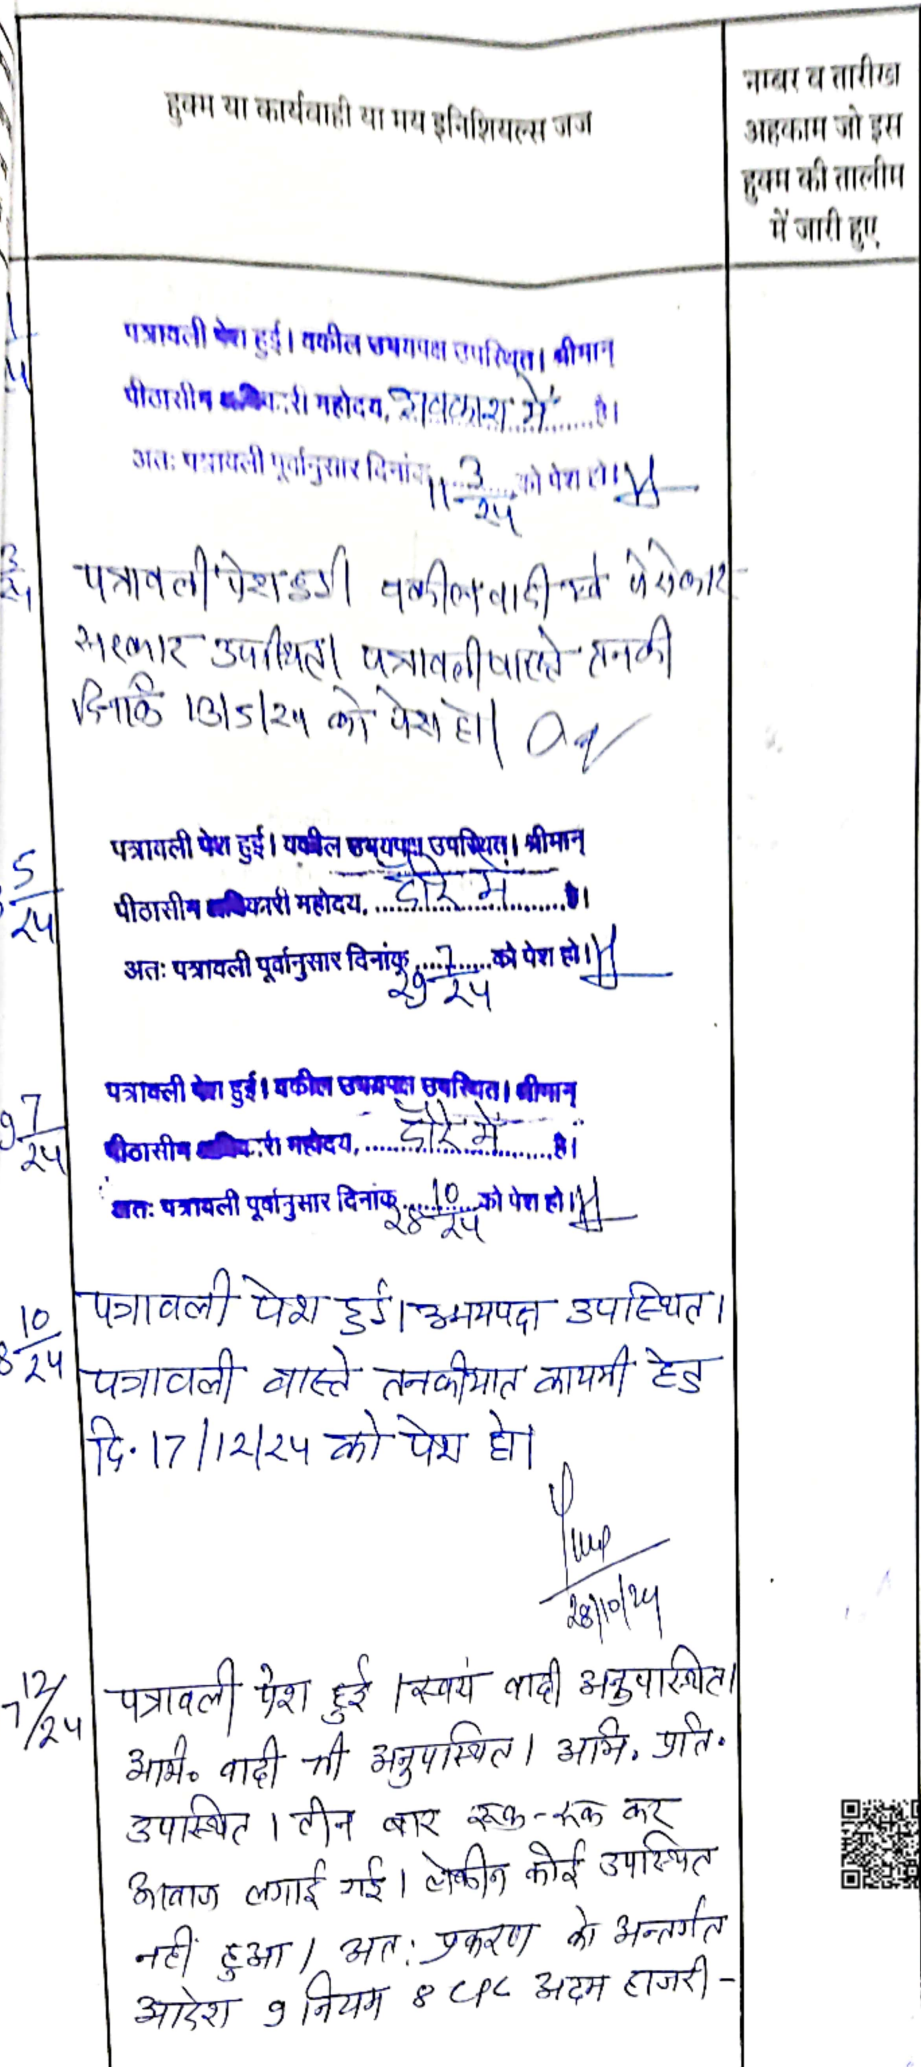 हुक्म या कार्यवाही या मय इनिशियल्स जज
नम्बर व तारीख
अहकाम जो इस
हुक्म की तालीम
में जारी हुए
पत्रावली पेश हुई। वकील उभयपक्ष उपस्थित। श्रीमान्
पीठासीन अधिकारी महोदय, अवकाश में है।
अतः पत्रावली पूर्वानुसार दिनांक 11 3/24 को पेश हो।
पत्रावली पेश हुई। वकील वादी एवं पेरोकार
सरकार उपस्थित। पत्रावली वास्ते तनकी
दिनांक 13/5/24 को पेश हो।
5/24
पत्रावली पेश हुई। वकील उभयपक्ष उपस्थित। श्रीमान्
पीठासीन अधिकारी महोदय, दौरे में है।
अतः पत्रावली पूर्वानुसार दिनांक 29 7/24 को पेश हो।
7/24
पत्रावली पेश हुई। वकील उभयपक्ष उपस्थित। श्रीमान्
पीठासीन अधिकारी महोदय, दौरे में है।
अतः पत्रावली पूर्वानुसार दिनांक 28 10/24 को पेश हो।
10/24
पत्रावली पेश हुई। उभयपक्ष उपस्थित।
पत्रावली वास्ते तनकीयात कायमी हेतु
दि. 17/12/24 को पेश हो।
28/10/24
12/24
पत्रावली पेश हुई। स्वयं वादी अनुपस्थित।
अभि. वादी भी अनुपस्थित। अभि. प्रति.
उपस्थित। तीन बार रूक-रूक कर
आवाज लगाई गई। लेकीन कोई उपस्थित
नहीं हुआ। अत: प्रकरण को अन्तर्गत
आदेश 9 नियम 8 CPC अदम हाजरी -